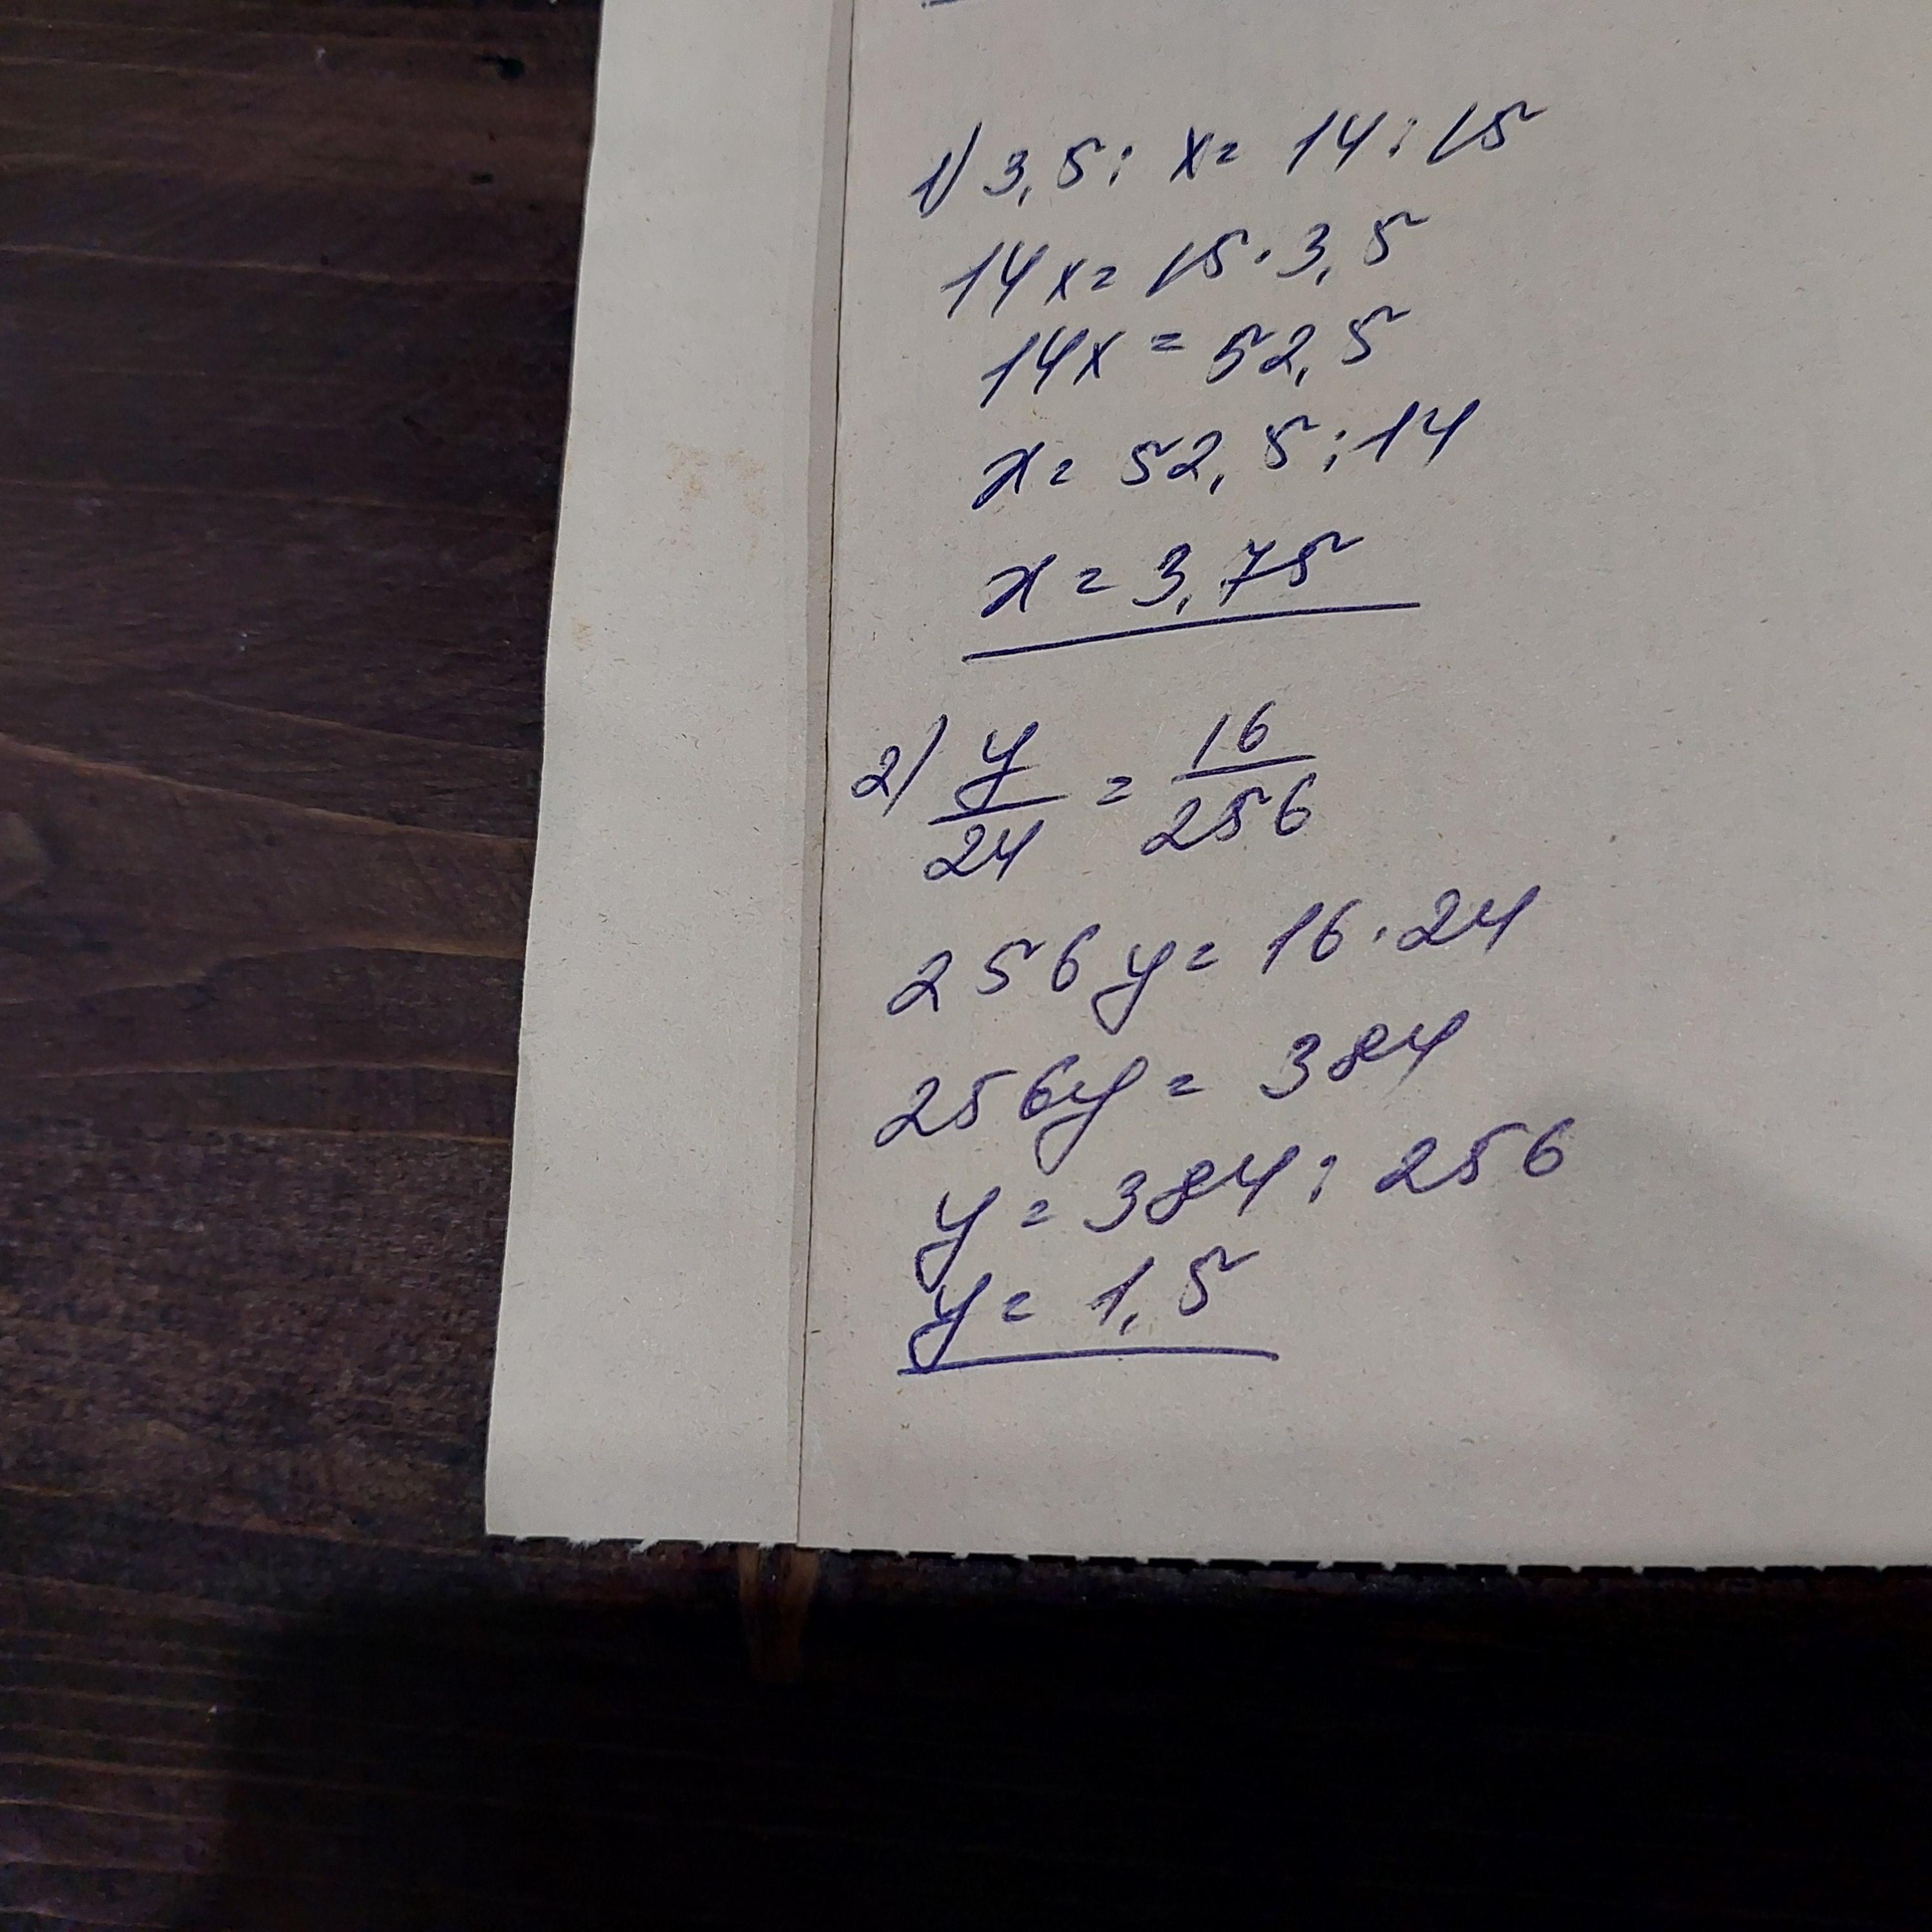 1) 3,5 : x = 14 : 15
14x = 15 · 3,5
14x = 52,5
x = 52,5 : 14
x = 3,75
2) y/24 = 16/256
256y = 16 · 24
256y = 384
y = 384 : 256
y = 1,5